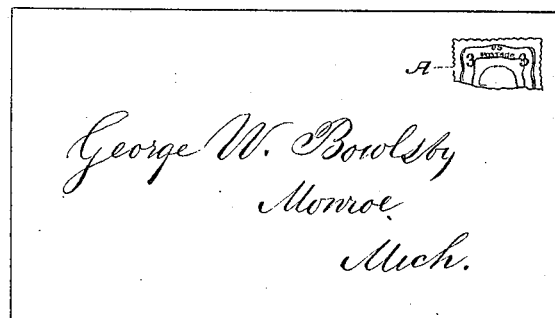 U.S.
POSTAGE
3 3
A
George W. Bowlsby
Monroe.
Mich.